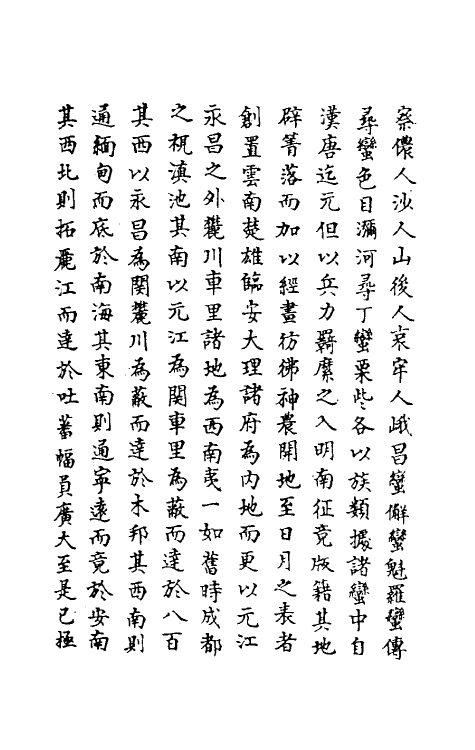 察儂人沙人山後人哀牢人峨昌蠻㒠蠻魁羅蠻傳
尋蠻色目瀰河尋丁蠻栗些各以族類據諸蠻中自
漢唐迄元但以兵力羇縻之入明南征竟版籍其地
辟箐落而加以經畫彷彿神農開地至日月之表者
創置雲南楚雄臨安大理諸府為內地而更以元江
永昌之外麓川車里諸地為西南夷一如舊時成都
之視滇池其南以元江為関車里為蔽而達於八百
其西以永昌為関麓川為蔽而達於木邦其西南則
通緬甸而底於南海其東南則通寧遠而竟於安南
其西北則拓麗江而達於吐蕃幅員廣大至是已極